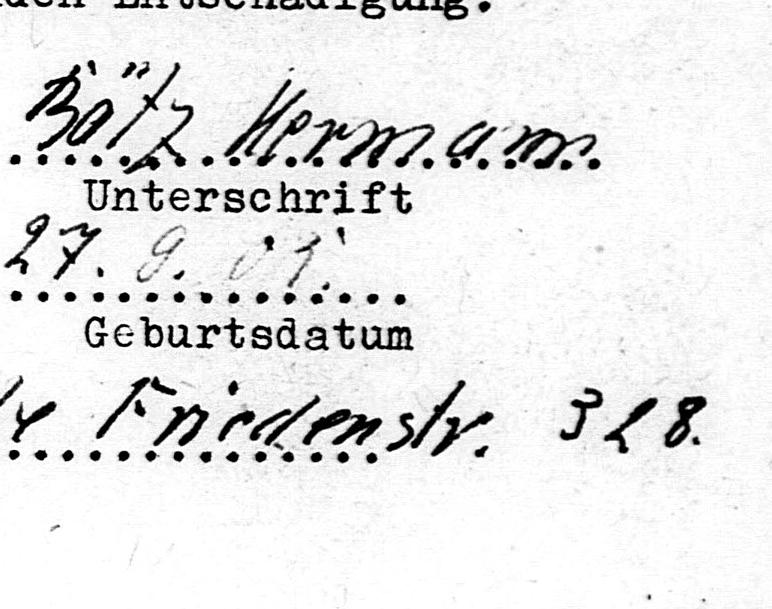 Entschädigung.
Bötz Hermann
Unterschrift
27. 9. 01.
Geburtsdatum
Friedenstr. 328.